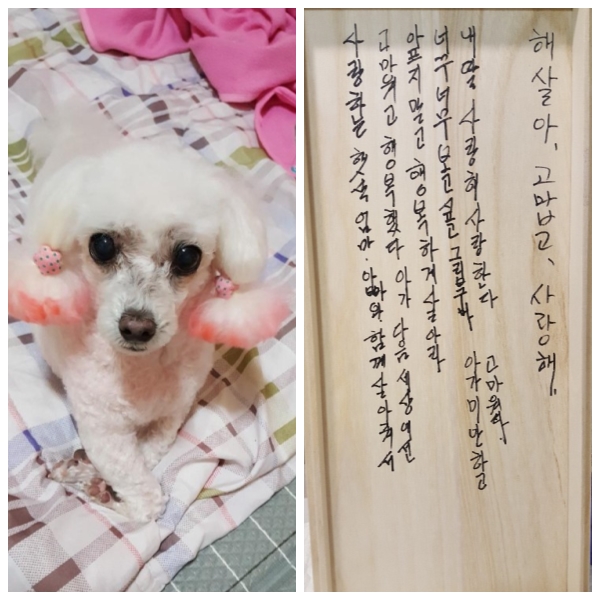 사랑하는 햇살 엄마. 아빠와 함께 살아줘서
고마웠고 행복했다 아가 다음 세상에선
아프지 말고 행복하게 살아라
너무 너무 보고 싶고 그립구나 아가 미안하고
고마워라.
내딸 사랑해 사랑한다
해살아, 고맙고, 사랑해.